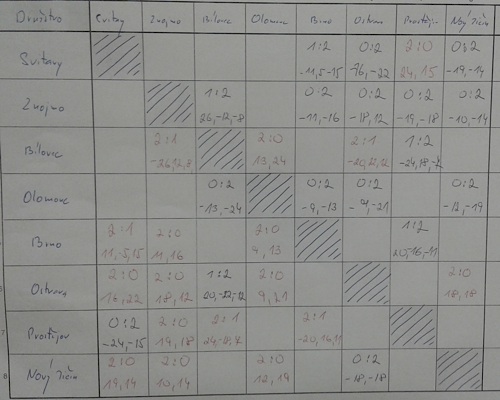 Družstvo Svitavy Znojmo Bílovec Olomouc Brno Ostrava Prostějov Nový Jičín
Svitavy 1:2 0:2 2:0 0:2
-11,5-15 -16,-22 24,15 -19,-14
Znojmo 1:2 0:2 0:2 0:2 0:2
26,-12,-8 -11,-16 -18,12 -19,-18 -10,-14
Bílovec 2:1 2:0 2:1 1:2
-26,12,8 13,24 -20,12,12 -24,18,-7
Olomouc 0:2 0:2 0:2 0:2
-13,-24 -9,-13 -9,-21 -12,-19
Brno 2:1 2:0 2:0 1:2
11,-5,15 11,16 9,13 20,-16,-11
Ostrava 2:0 2:0 1:2 2:0 2:0
16,22 18,12 20,-12,-12 9,21 18,18
7 Prostějov 0:2 2:0 2:1 2:1
-24,-15 19,18 24,-18,7 -20,16,11
8 Nový Jičín 2:0 2:0 2:0 0:2
19,14 10,14 12,19 -18,-18